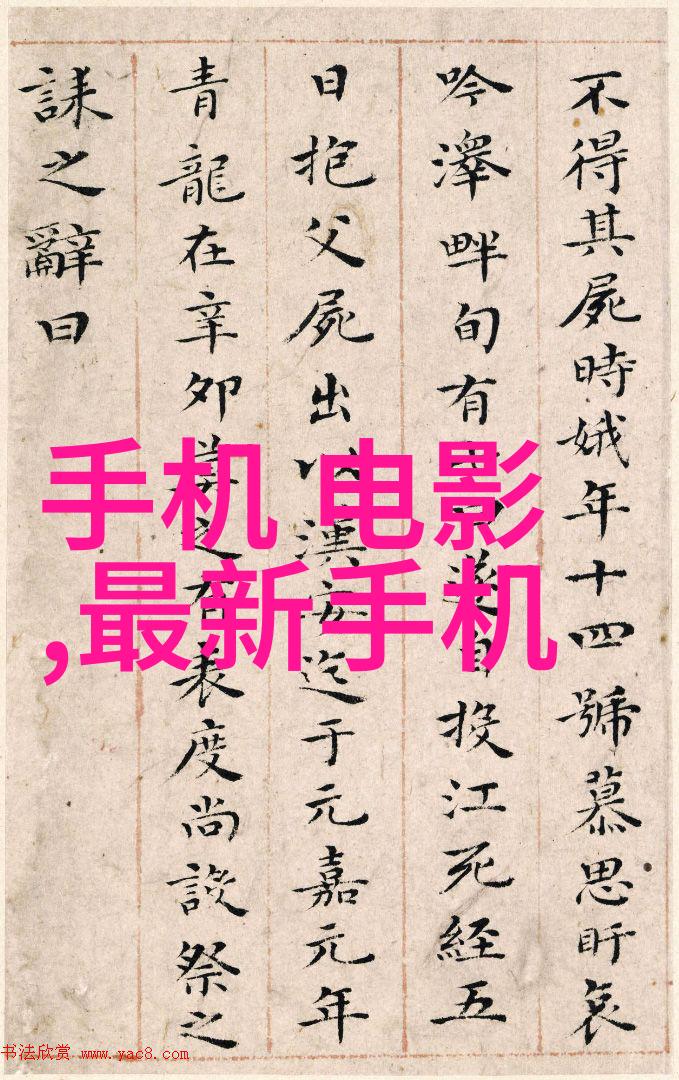 不得其屍時娥年十四號慕思盱哀
吟澤畔旬有七日遂自投江死經五
日抱父屍出以漢安迄于元嘉元年
青龍在辛卯莫之有表度尚設祭之
誄之辭曰
手机 电影
,最新手机
书法欣赏 www.yac8.com